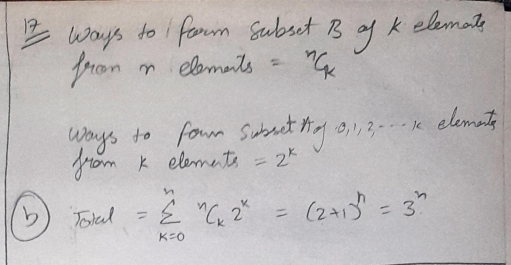 17 Ways to form subset B of k elements
from n elements = ⁿCₖ
Ways to form subset A of 0,1,2,---k elements
from k elements = 2ᵏ
(b) Total = Σ ⁿCₖ 2ᵏ = (2+1)ⁿ = 3ⁿ
n
K=0